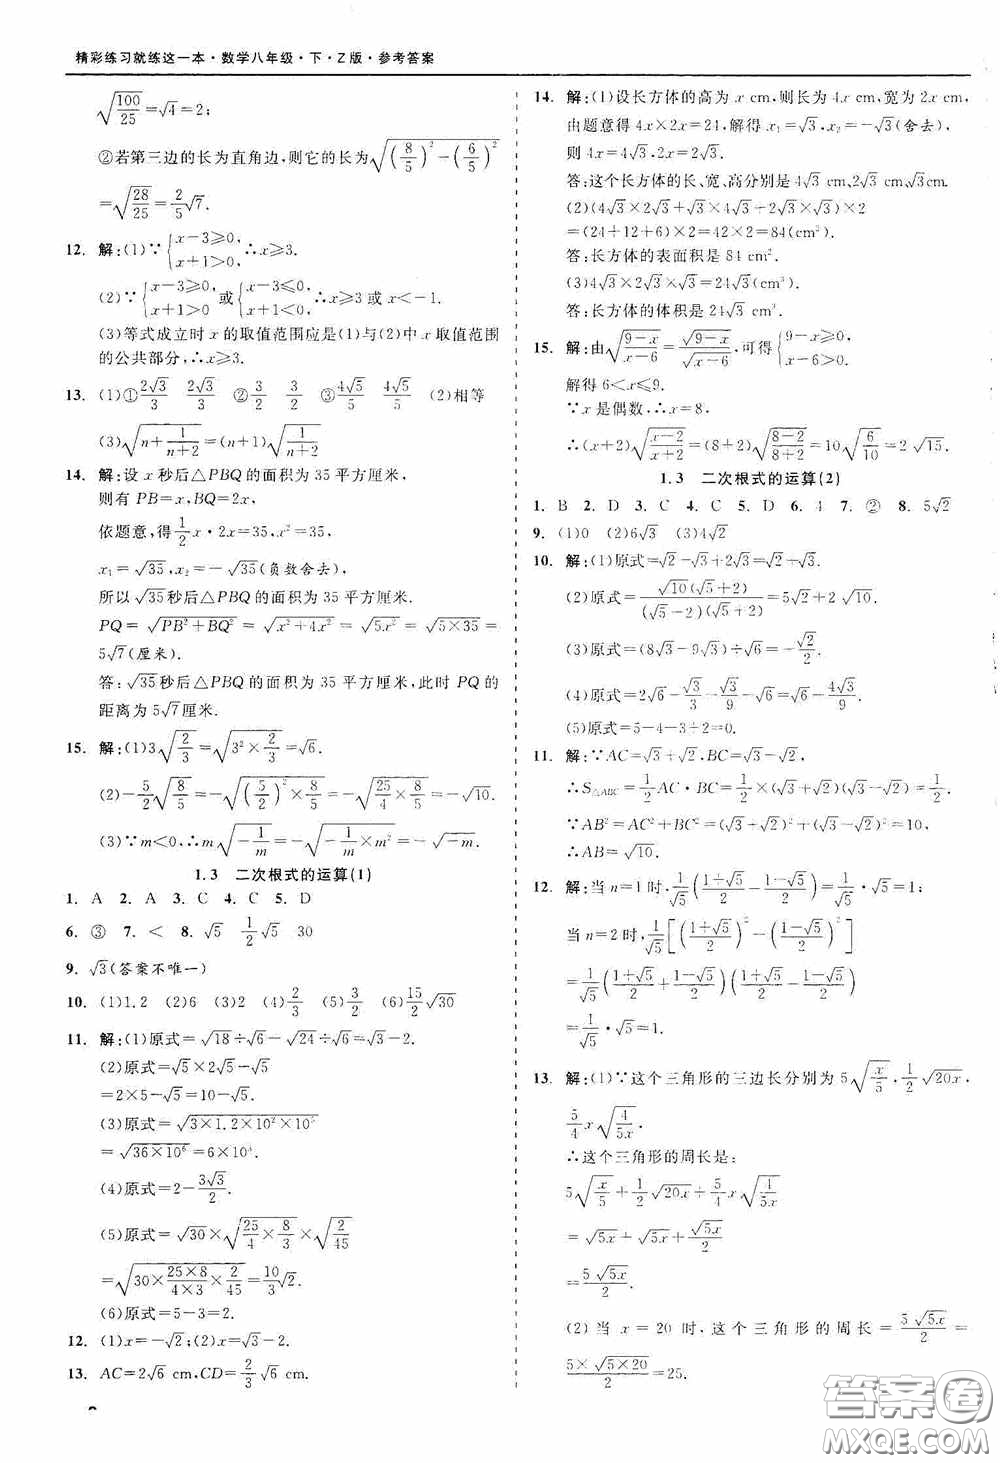 精彩练习就练这一本·数学八年级·下·Z版·参考答案
√(100/25)=√4=2;
②若第三边的长为直角边,则它的长为√((8/5)²-(6/5)²)
=√(28/25)=2/5√7.
12. 解:(1)∵{x-3≥0, x+1>0, ∴x≥3.
(2)∵{x-3≥0, x+1>0 或{x-3≤0, x+1<0, ∴x≥3或x<-1.
(3)等式成立时x的取值范围应是(1)与(2)中x取值范围
的公共部分,∴x≥3.
13. (1)①2√3/3 2√3/3 ②3/2 3/2 ③4√5/5 4√5/5 (2)相等
(3)√(n+1/(n+2))=(n+1)√(1/(n+2))
14. 解:设x秒后△PBQ的面积为35平方厘米,
则有PB=x,BQ=2x,
依题意,得1/2x·2x=35,x²=35,
x₁=√35,x₂=-√35(负数舍去),
所以√35秒后△PBQ的面积为35平方厘米.
PQ=√(PB²+BQ²)=√(x²+4x²)=√(5x²)=√(5×35)=
5√7(厘米).
答:√35秒后△PBQ的面积为35平方厘米,此时PQ的
距离为5√7厘米.
15. 解:(1)3√(2/3)=√(3²×2/3)=√6.
(2)-5/2√(8/5)=-√((5/2)²×8/5)=-√(25/4×8/5)=-√10.
(3)∵m<0,∴m√(-1/m)=-√(-1/m×m²)=-√(-m).
1.3 二次根式的运算(1)
1. A 2. A 3. C 4. C 5. D
6. ③ 7. < 8. √5 1/2√5 30
9. √3(答案不唯一)
10. (1)1.2 (2)6 (3)2 (4)2/3 (5)3/2 (6)15/2√30
11. 解:(1)原式=√18÷√6-√24÷√6=√3-2.
(2)原式=√5×2√5-√5
=2×5-√5=10-√5.
(3)原式=√(3×1.2×10²×10⁵)
=√(36×10⁶)=6×10³.
(4)原式=2-3√3/2.
(5)原式=√30×√(25/4×8/3)×√(2/45)
=√(30×(25×8)/(4×3)×2/45)=10/3√2.
(6)原式=5-3=2.
12. (1)x=-√2;(2)x=√3-2.
13. AC=2√6 cm,CD=2/3√6 cm.
14. 解:(1)设长方体的高为x cm,则长为4x cm,宽为2x cm,
由题意得4x×2x=24,解得x₁=√3,x₂=-√3(舍去),
则4x=4√3,2x=2√3.
答:这个长方体的长、宽、高分别是4√3 cm、2√3 cm、√3cm.
(2)(4√3×2√3+√3×4√3+2√3×√3)×2
=(24+12+6)×2=42×2=84(cm²).
答:长方体的表面积是84 cm².
(3)4√3×2√3×√3=24√3(cm³).
答:长方体的体积是24√3 cm³.
15. 解:由√((9-x)/(x-6))=√(9-x)/√(x-6),可得{9-x≥0, x-6>0.
解得6<x≤9.
∵x是偶数,∴x=8,
∴(x+2)√((x-2)/(x+2))=(8+2)√((8-2)/(8+2))=10√(6/10)=2√15.
1.3 二次根式的运算(2)
1. B 2. D 3. C 4. C 5. D 6. 4 7. ② 8. 5√2
9. (1)0 (2)6√3 (3)4√2
10. 解:(1)原式=√2-√3+2√3=√2+√3.
(2)原式=√10(√5+2)/((√5-2)(√5+2))=5√2+2√10.
(3)原式=(8√3-9√3)÷√6=-√2/2.
(4)原式=2√6-√3/3-√3/9-√6=√6-4√3/9.
(5)原式=5-4-3+2=0.
11. 解:∵AC=√3+√2,BC=√3-√2,
∴S△ABC=1/2AC·BC=1/2×(√3+√2)(√3-√2)=1/2.
∵AB²=AC²+BC²=(√3+√2)²+(√3-√2)²=10,
∴AB=√10.
12. 解:当n=1时,1/√5((1+√5)/2-(1-√5)/2)=1/√5·√5=1;
当n=2时,1/√5[((1+√5)/2)²-((1-√5)/2)²]
=1/√5((1+√5)/2+(1-√5)/2)((1+√5)/2-(1-√5)/2)
=1/√5·√5=1.
13. 解:(1)∵这个三角形的三边长分别为5√(x/5),1/2√(20x),
5/4x√(4/(5x)),
∴这个三角形的周长是:
5√(x/5)+1/2√(20x)+5/4x√(4/(5x))
=√(5x)+√(5x)+√(5x)/2
=5√(5x)/2.
(2)当x=20时,这个三角形的周长=5√(5x)/2=
5×√(5×20)/2=25.
答案圈
MXQE.COM